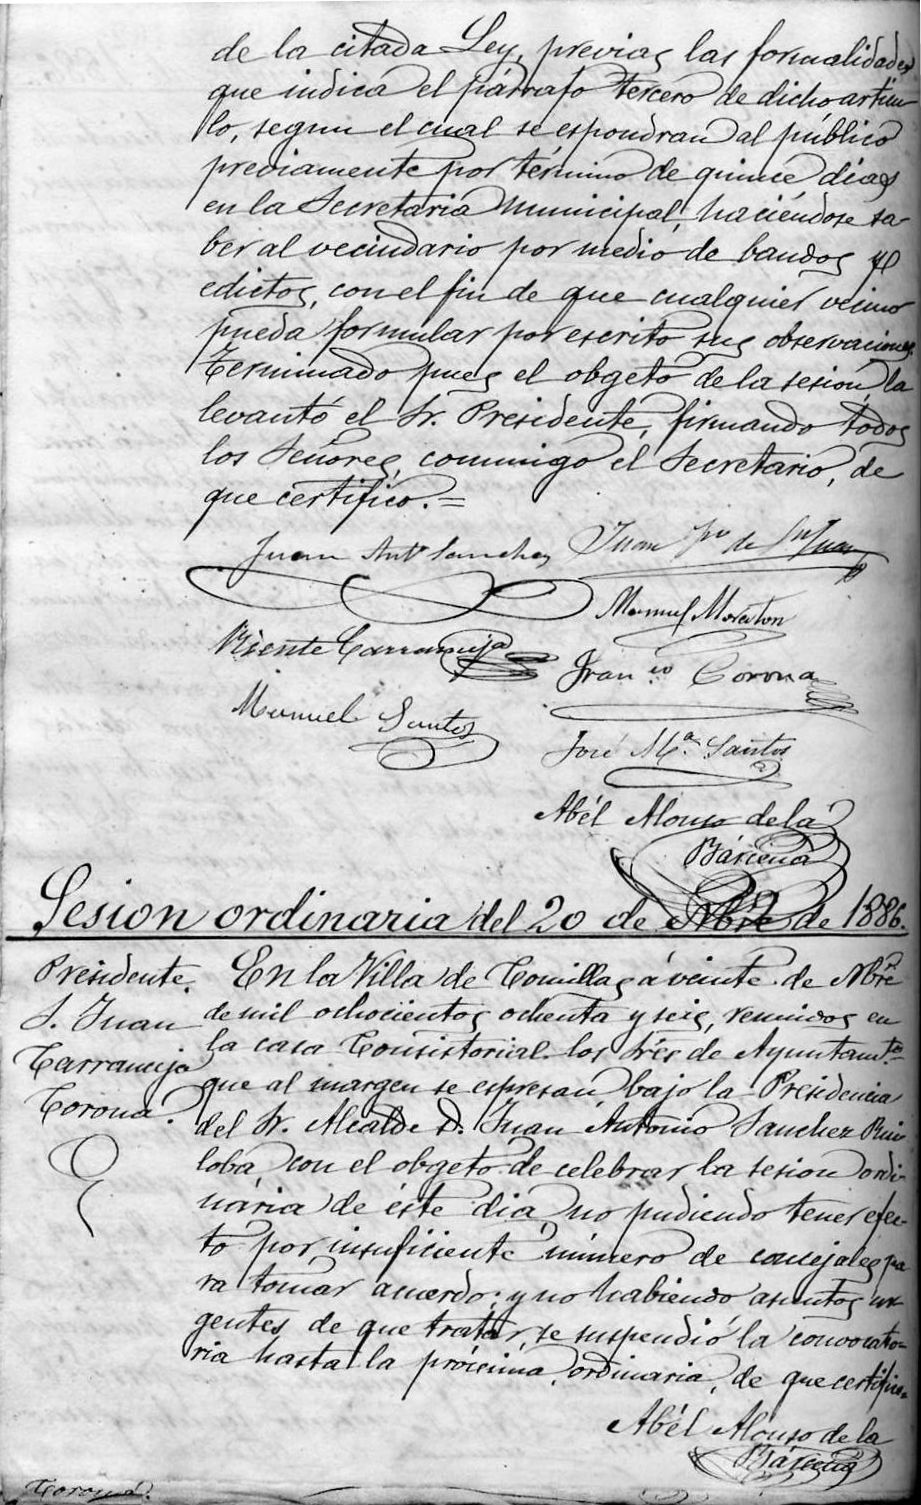 de la citada Ley, previas las formalidades
que indica el párrafo tercero de dicho artícu-
lo, segun el cual se espondran al público
previamente por término de quince dias
en la Secretaria Municipal, haciéndose sa-
ber al vecindario por medio de bandos y
edictos, con el fin de que cualquier vecino
pueda formular por escrito sus observaciones.
Terminado pues el obgeto de la sesion, la
levantó el Sr. Presidente, firmando todos
los Señores, conmigo el Secretario, de
que certifico.=
Juan Ant.º Sanchez Juan de
Manuel
Vicente Carranceja
Fran.co Corona
Manuel Santos
José M.ª Santos
Abél Alonso de la
Bárcena
Sesion ordinaria del 20 de Nbre de 1886.
Presidente.
S. Juan
Carranceja
Corona.
En la Villa de Comillas á veinte de Nbre
de mil ochocientos ochenta y seis, reunidos en
la casa Consistorial los Sres de Ayuntamto
que al margen se espresan, bajo la Presidencia
del Sr. Alcalde D. Juan Antonio Sanchez Rui-
loba con el obgeto de celebrar la sesion ordi-
naria de éste dia, no pudiendo tener efec-
to por insuficiente número de concejales pa-
ra tomar acuerdo; y no habiendo asuntos ur-
gentes de que tratar, se suspendió la convocato-
ria hasta la próxima ordinaria, de que certifico=
Abél Alonso de la
Bárcena
Corona.